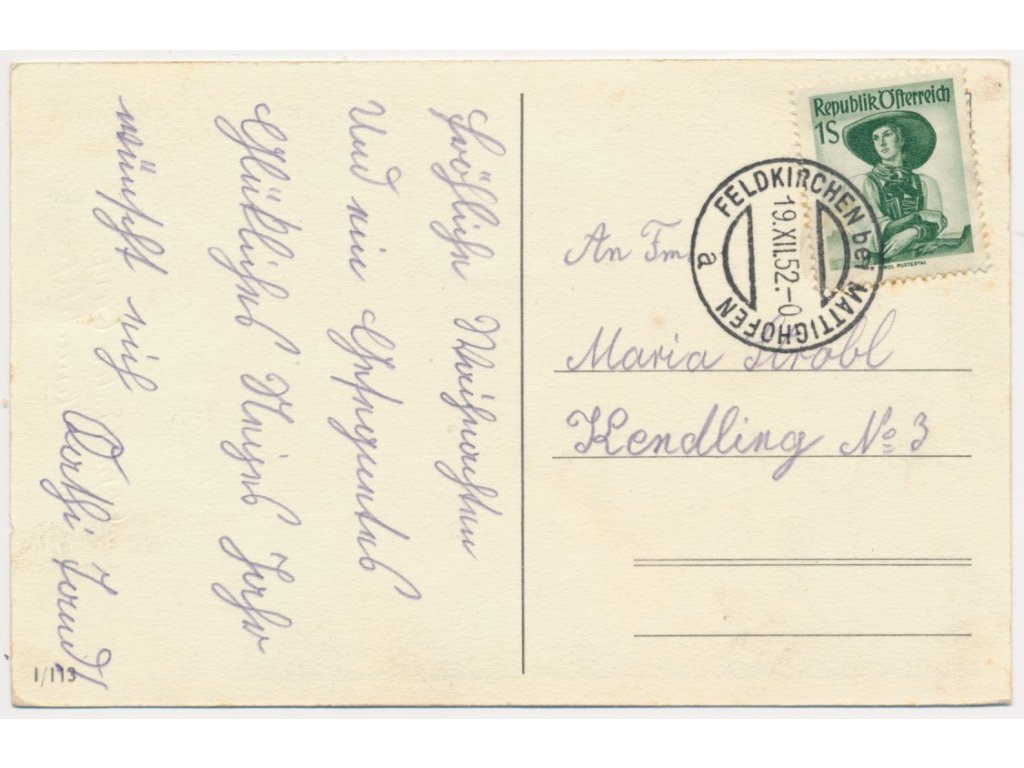 Fröhliche Weihnachten
Und ein Gesegnetes
Glückliches Neujes Jahr
wünscht euch
Republik Österreich
1S
TIROL PUSTERTAL
FELDKIRCHEN bei MATTIGHOFEN
19.XII.52.-0
a
An Frn
Maria Strobl
Kendling No 3
1/113